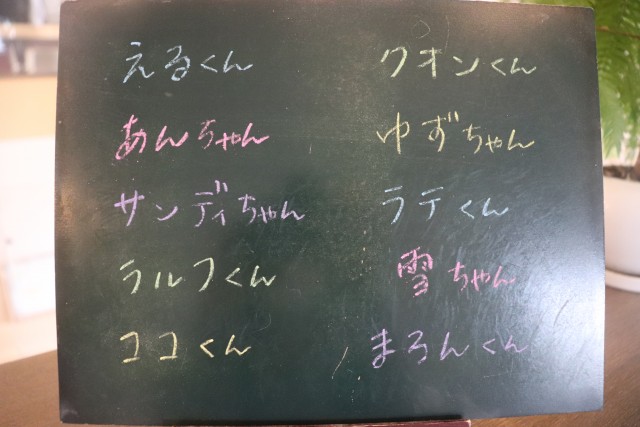 えるくん
あんちゃん
サンディちゃん
ラルフくん
ココくん
クオンくん
ゆずちゃん
ラテくん
雪ちゃん
まろんくん